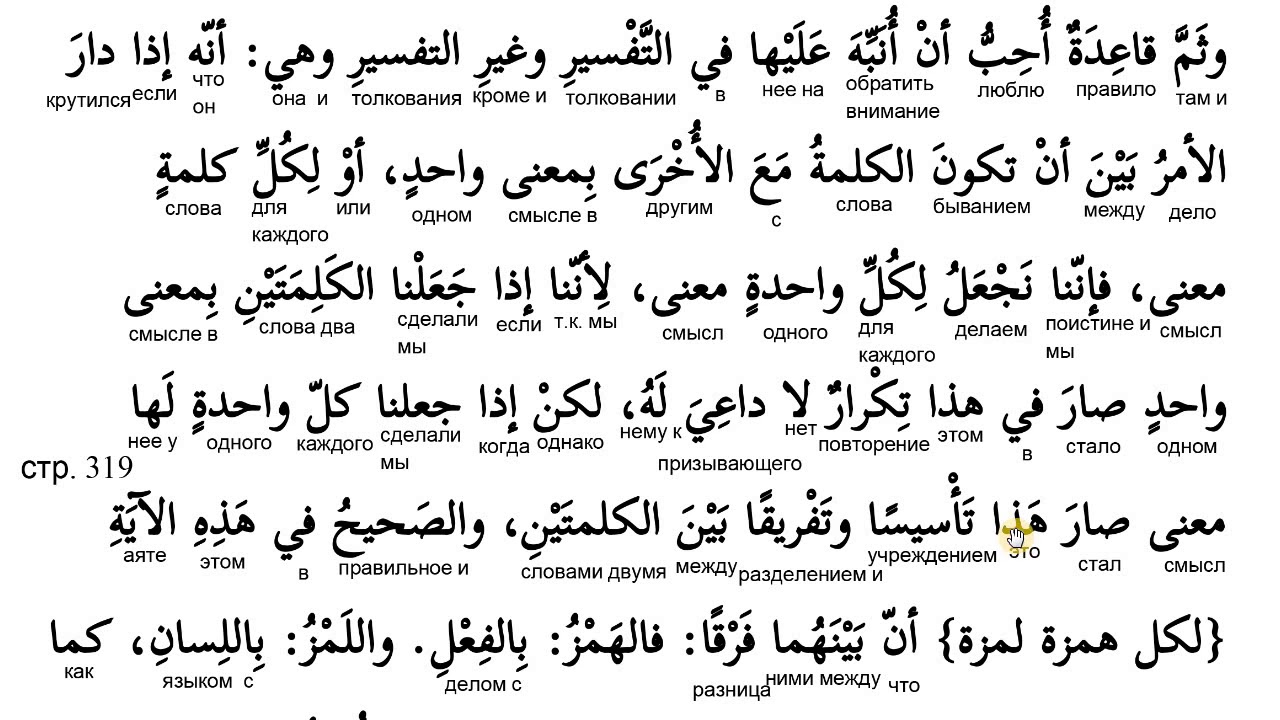 وثَمَّ قاعِدَةٌ أُحِبُّ أنْ أُنَبِّهَ عَلَيْها في التَّفْسيرِ وغيرِ التفسيرِ وهي: أنّه إذا دارَ
там и правило люблю обратить внимание нее на в толковании кроме и толкования она и что он если крутился
الأمرُ بَيْنَ أنْ تكونَ الكلمةُ مَعَ الأُخْرَى بِمعنى واحدٍ، أوْ لِكُلِّ كلمةٍ
дело между быванием слова с другим смысле в одном или для каждого слова
معنى، فإنّنا نَجْعَلُ لِكُلِّ واحدةٍ معنى، لِأنّنا إذا جَعَلْنا الكَلِمَتَيْنِ بِمعنى
смысл поистине и мы делаем для каждого одного смысл т.к. мы если сделали мы слова два смысле в
واحدٍ صارَ في هذا تِكْرارٌ لا داعِيَ لَهُ، لكنْ إذا جعلنا كلّ واحدةٍ لَها
одном стало в этом повторение нет призывающего нему к однако когда сделали мы каждого одного нее у
стр. 319
معنى صارَ هَذا تَأْسيسًا وتَفْريقًا بَيْنَ الكلمتَيْنِ، والصَحيحُ في هَذِهِ الآيَةِ
смысл стал это учреждением разделением и между словами двумя правильное и в этом аяте
{لكل همزة لمزة} أنّ بَيْنَهُما فَرْقًا: فالهَمْزُ: بِالفِعْلِ. واللَمْزُ: بِاللِسانِ، كما
что ними между разница делом с языком с как